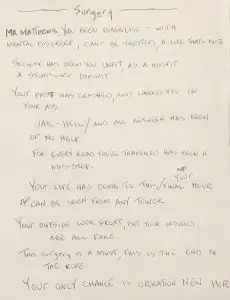 Surgery
MR MATTHEWS YOU BEEN DIAGNOISE - WITH
MENTAL DISORDER, CAN'T BE TRUSTED, A LIFE THATS
SOCIETY HAS DEEM YOU UNFIT, AS A MISFIT
A
YOUR PAST HAS CRASHED, AND LANDED YOU ON
YOUR ASS.
JAIL - HELL / AND ALL BETWEEN HAS BEEN
OF NO HELP.
FOR EVERY ROAD YOU'VE TRAVELED HAS BEEN A
MIS-STEP.
YOUR LIFE HAS COME TO THIS / FINAL HOUR
CAN BE SEEN FROM ANY TOWER
YOUR OUTSIDE LOOK GREAT, BUT YOUR INSIDES,
ARE ALL FAKE.
THIS SURGERY IS A MUST, THIS IS THE END OF
THE ROPE
YOUR ONLY CHANCE IS OPERATION NEW HOPE